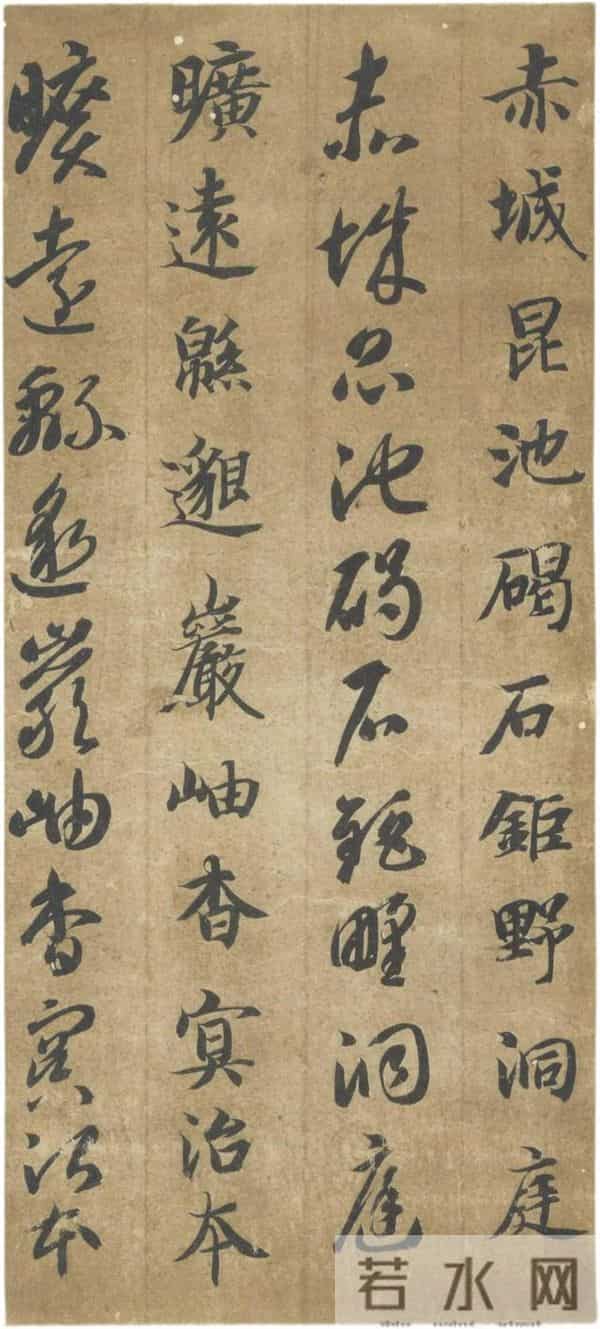 赤城昆池碣石鉅野洞庭
赤城昆池碣石鉅野洞庭
曠遠緜邈巖岫杳冥治本
曠遠緜邈巖岫杳冥治本
若水网